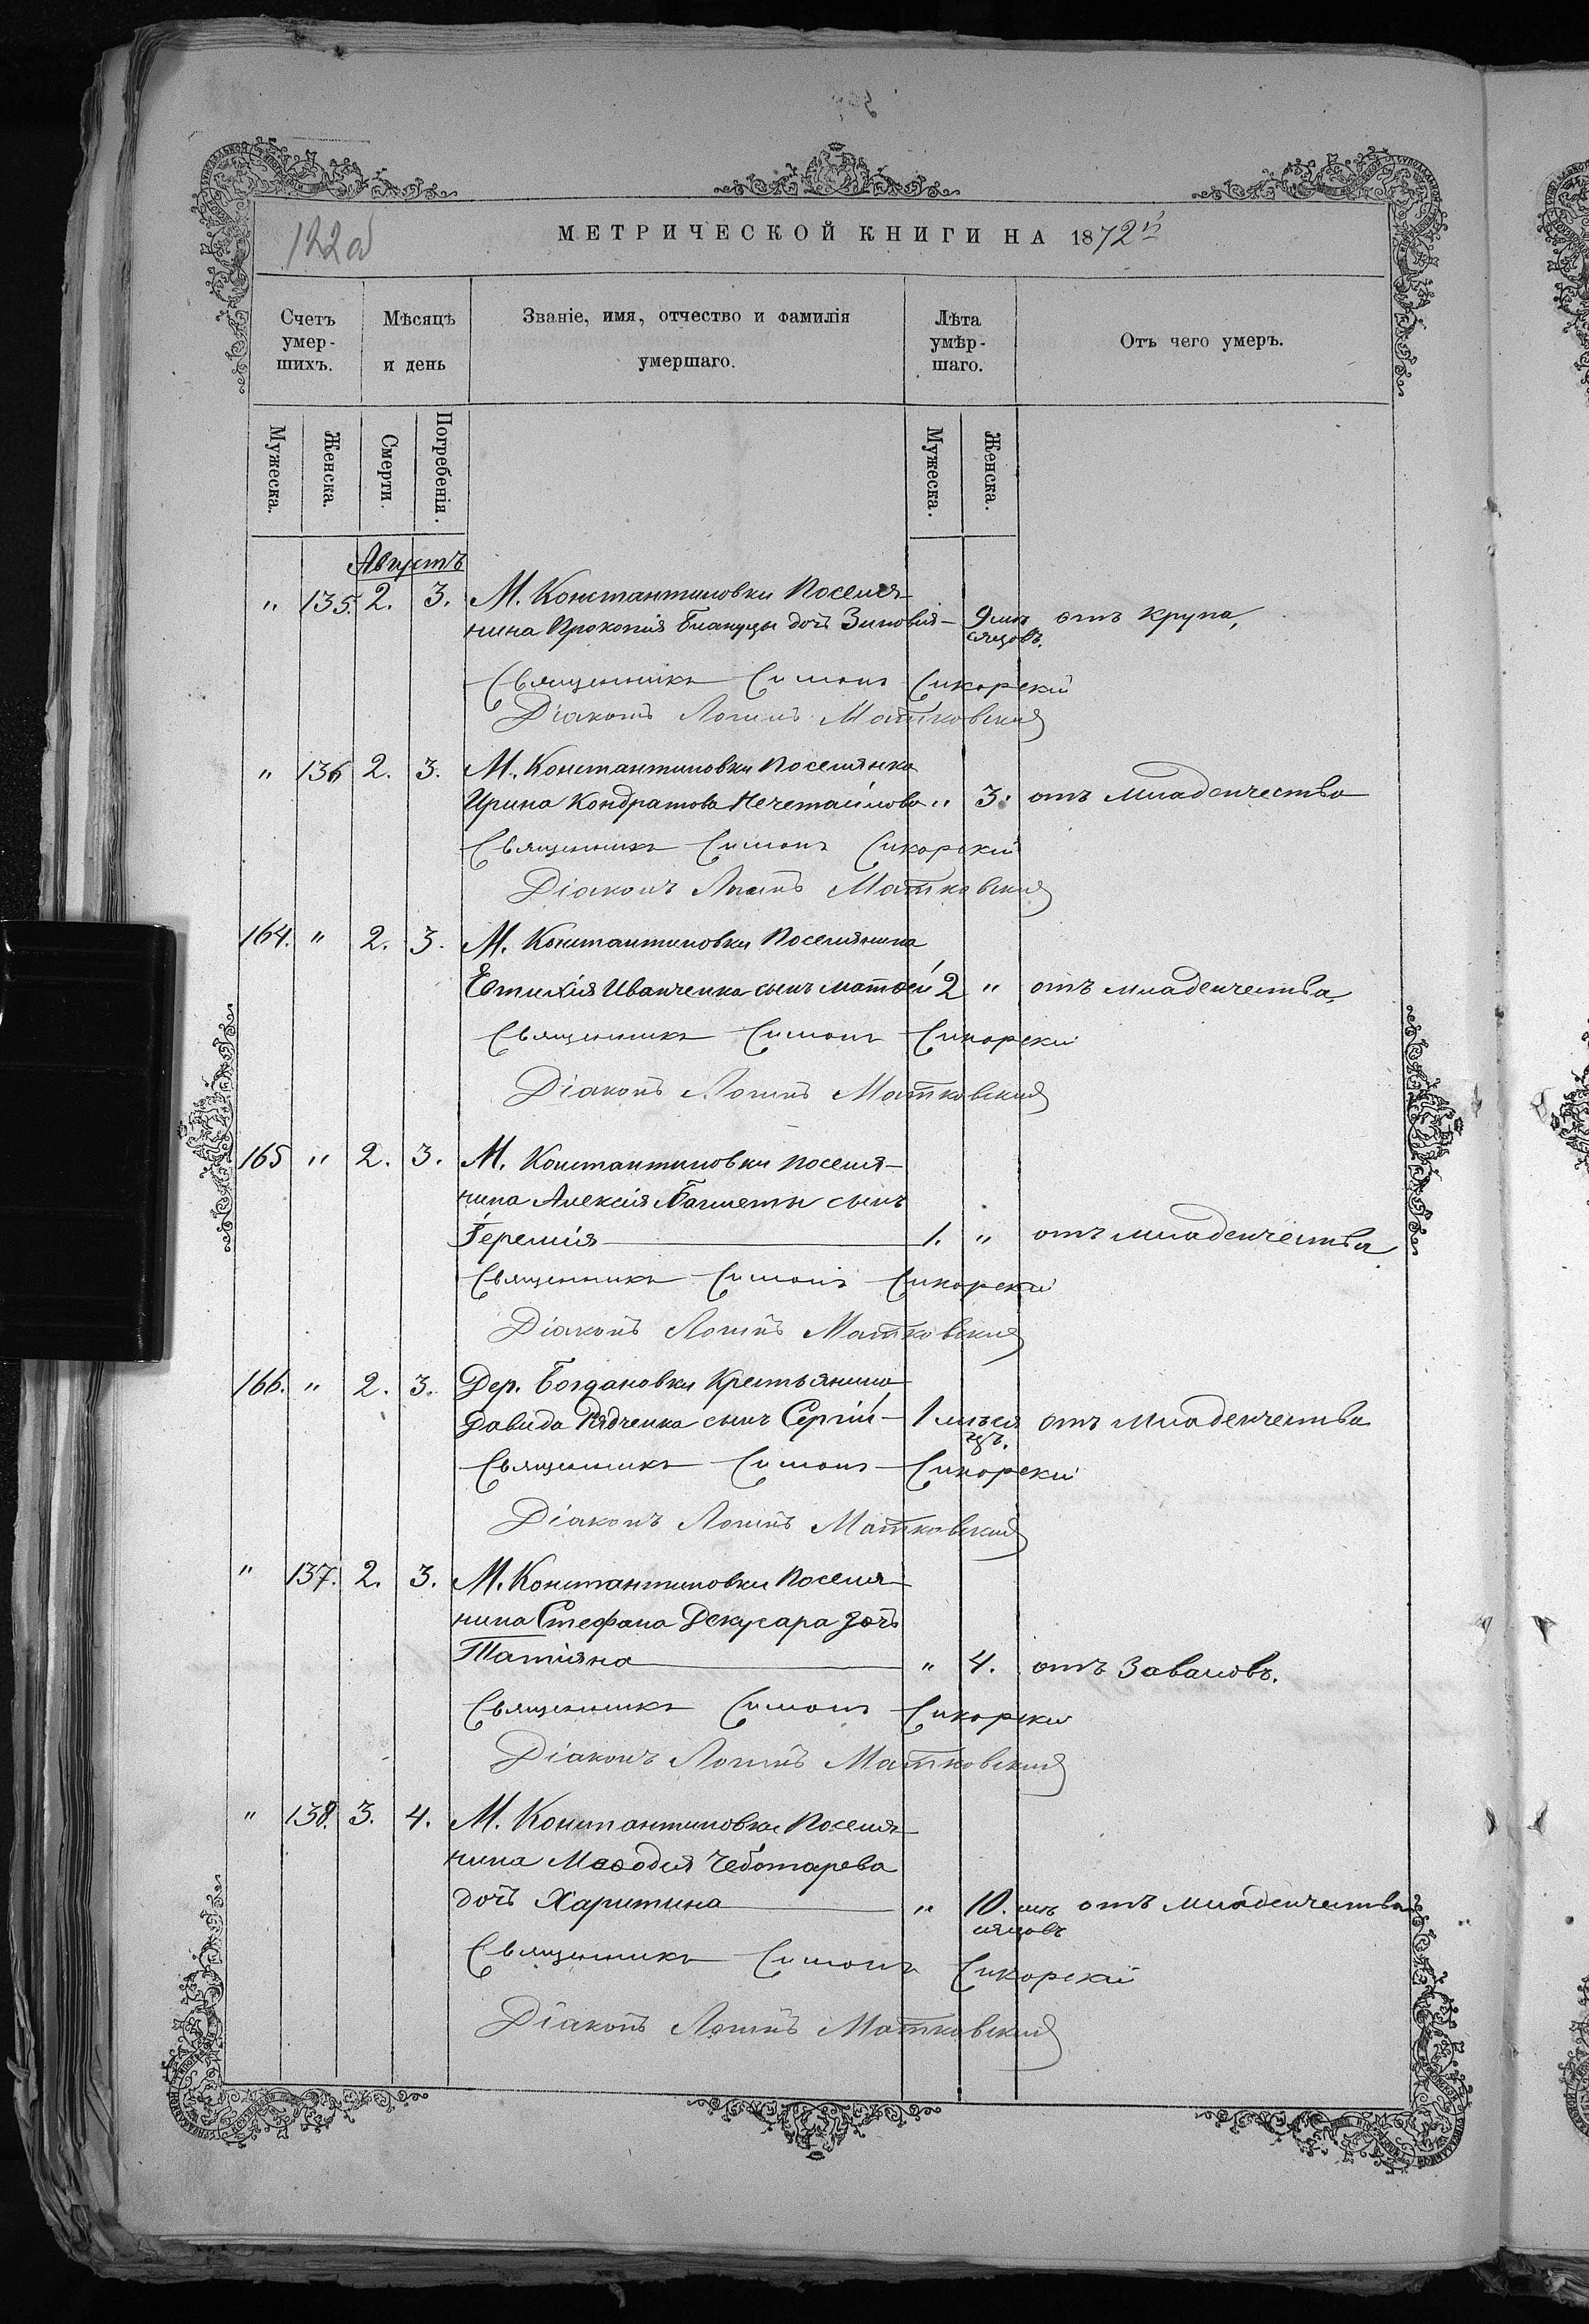 122об
МЕТРИЧЕСКОЙ КНИГИ НА 1872й
Счетъ умер- шихъ.
Мѣсяцъ и день
Званіе, имя, отчество и фамилія умершаго.
Лѣта умѣр- шаго.
Отъ чего умеръ.
Мужеска. Женска. Смерти. Погребенія. Мужеска. Женска.
Августъ
" 135. 2. 3. М. Константиновки Поселя-
нина Прокопія дочь Зиновія - 9 мѣ отъ крупа,
сяцовъ.
Священникъ Симонъ Сикорскій
Діаконъ Логинъ Матковскій
" 136 2. 3. М. Константиновки Поселянка
Ирина Кондратова Нечетайлова " 3. отъ младенчества
Священникъ Симонъ Сикорскій
Діаконъ Логинъ Матковскій
164. " 2. 3. М. Константиновки Поселянина
Евтихія Иванченка сынъ Матѳей 2 " отъ младенчества,
Священникъ Симонъ Сикорскій
Діаконъ Логинъ Матковскій
165 " 2. 3. М. Константиновки поселя-
нина Алексія Багметы сынъ
Іеремія 1. " отъ младенчества
Священникъ Симонъ Сикорскій
Діаконъ Логинъ Матковскій
166. " 2. 3. Дер. Богдановки Крестьянина
Давида Рядченка сынъ Сергій - 1 мѣся отъ младенчества
цъ.
Священникъ Симонъ Сикорскій
Діаконъ Логинъ Матковскій
" 137. 2. 3. М. Константиновки Поселя-
нина Стефана Декусара дочь
Татіяна " 4. отъ заваловъ.
Священникъ Симонъ Сикорскій
Діаконъ Логинъ Матковскій
" 138. 3. 4. М. Константиновки Поселя-
нина Меѳодія Чеботарева
дочь Харитина " 10. мѣ отъ младенчества
сяцовъ
Священникъ Симонъ Сикорскій
Діаконъ Логинъ Матковскій